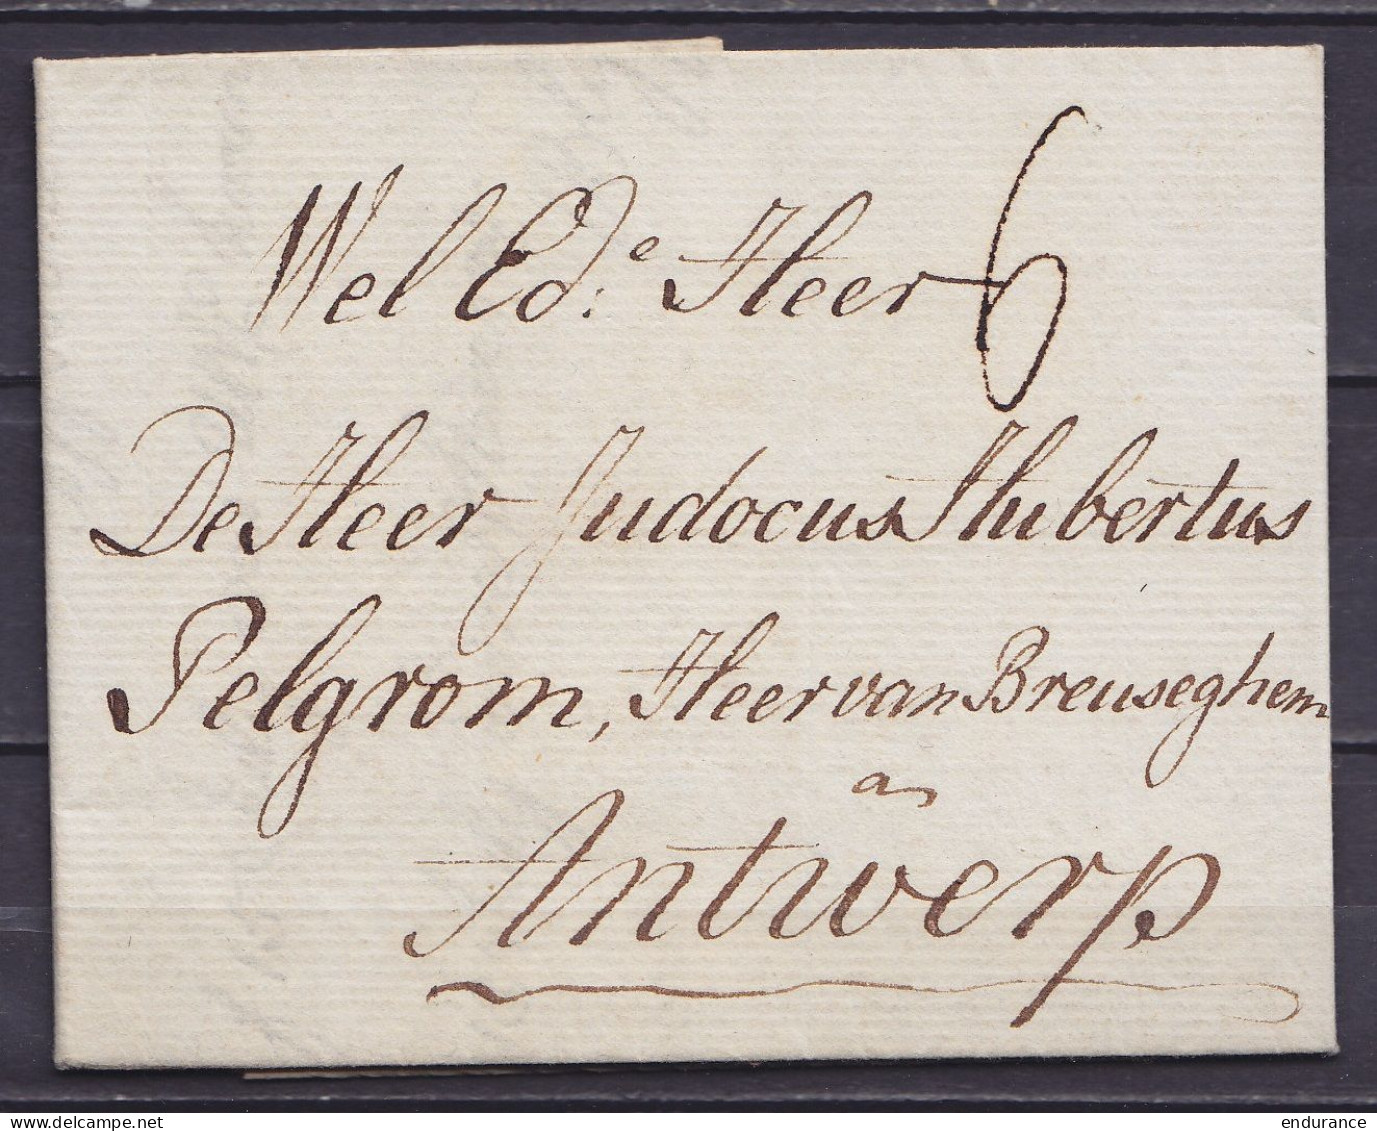 Wel Ed:e Heer 6
De Heer Judocus Hubertus
Pelgrom, Heer van Breuseghem
a
Antwerp
www.delcampe.net
endurance